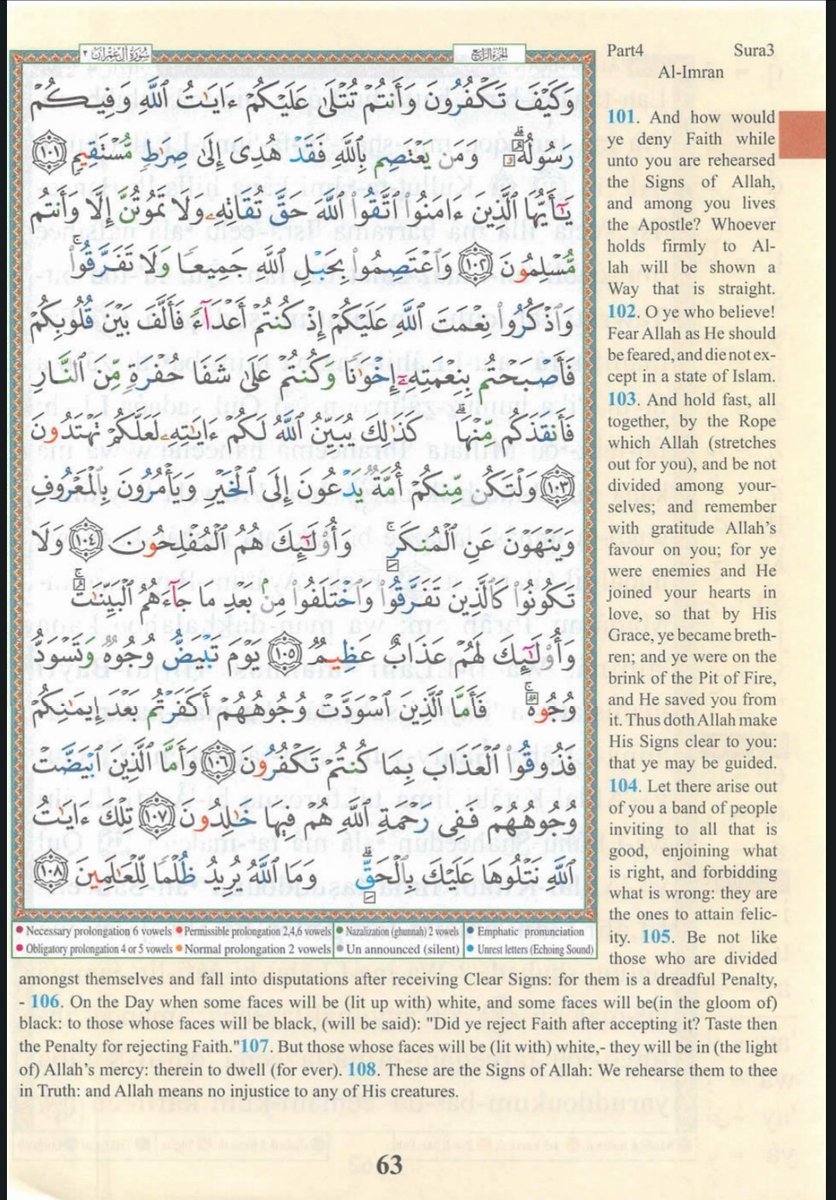 سُورَةُ آلِ عِمْرَان ٣
الجُزءُ الرَّابِعُ
وَكَيْفَ تَكْفُرُونَ وَأَنتُمْ تُتْلَىٰ عَلَيْكُمْ ءَايَـٰتُ ٱللَّهِ وَفِيكُمْ
رَسُولُهُۥ ۗ وَمَن يَعْتَصِم بِٱللَّهِ فَقَدْ هُدِىَ إِلَىٰ صِرَٰطٍ مُّسْتَقِيمٍ ١٠١
يَـٰٓأَيُّهَا ٱلَّذِينَ ءَامَنُوا۟ ٱتَّقُوا۟ ٱللَّهَ حَقَّ تُقَاتِهِۦ وَلَا تَمُوتُنَّ إِلَّا وَأَنتُم
مُّسْلِمُونَ ١٠٢ وَٱعْتَصِمُوا۟ بِحَبْلِ ٱللَّهِ جَمِيعًا وَلَا تَفَرَّقُوا۟ ۚ
وَٱذْكُرُوا۟ نِعْمَتَ ٱللَّهِ عَلَيْكُمْ إِذْ كُنتُمْ أَعْدَآءً فَأَلَّفَ بَيْنَ قُلُوبِكُمْ
فَأَصْبَحْتُم بِنِعْمَتِهِۦٓ إِخْوَٰنًا وَكُنتُمْ عَلَىٰ شَفَا حُفْرَةٍ مِّنَ ٱلنَّارِ
فَأَنقَذَكُم مِّنْهَا ۗ كَذَٰلِكَ يُبَيِّنُ ٱللَّهُ لَكُمْ ءَايَـٰتِهِۦ لَعَلَّكُمْ تَهْتَدُونَ
١٠٣ وَلْتَكُن مِّنكُمْ أُمَّةٌ يَدْعُونَ إِلَى ٱلْخَيْرِ وَيَأْمُرُونَ بِٱلْمَعْرُوفِ
وَيَنْهَوْنَ عَنِ ٱلْمُنكَرِ ۚ وَأُو۟لَـٰٓئِكَ هُمُ ٱلْمُفْلِحُونَ ١٠٤ وَلَا
تَكُونُوا۟ كَٱلَّذِينَ تَفَرَّقُوا۟ وَٱخْتَلَفُوا۟ مِنۢ بَعْدِ مَا جَآءَهُمُ ٱلْبَيِّنَـٰتُ ۚ
وَأُو۟لَـٰٓئِكَ لَهُمْ عَذَابٌ عَظِيمٌ ١٠٥ يَوْمَ تَبْيَضُّ وُجُوهٌ وَتَسْوَدُّ
وُجُوهٌ ۚ فَأَمَّا ٱلَّذِينَ ٱسْوَدَّتْ وُجُوهُهُمْ أَكَفَرْتُم بَعْدَ إِيمَـٰنِكُمْ
فَذُوقُوا۟ ٱلْعَذَابَ بِمَا كُنتُمْ تَكْفُرُونَ ١٠٦ وَأَمَّا ٱلَّذِينَ ٱبْيَضَّتْ
وُجُوهُهُمْ فَفِى رَحْمَةِ ٱللَّهِ هُمْ فِيهَا خَـٰلِدُونَ ١٠٧ تِلْكَ ءَايَـٰتُ
ٱللَّهِ نَتْلُوهَا عَلَيْكَ بِٱلْحَقِّ ۗ وَمَا ٱللَّهُ يُرِيدُ ظُلْمًا لِّلْعَـٰلَمِينَ ١٠٨
Necessary prolongation 6 vowels Permissible prolongation 2,4,6 vowels Nazalization (ghunnah) 2 vowels Emphatic pronunciation
Obligatory prolongation 4 or 5 vowels Normal prolongation 2 vowels Un announced (silent) Unrest letters (Echoing Sound)
Part4 Sura3
Al-Imran
101. And how would
ye deny Faith while
unto you are rehearsed
the Signs of Allah,
and among you lives
the Apostle? Whoever
holds firmly to Al-
lah will be shown a
Way that is straight.
102. O ye who believe!
Fear Allah as He should
be feared, and die not ex-
cept in a state of Islam.
103. And hold fast, all
together, by the Rope
which Allah (stretches
out for you), and be not
divided among your-
selves; and remember
with gratitude Allah's
favour on you; for ye
were enemies and He
joined your hearts in
love, so that by His
Grace, ye became breth-
ren; and ye were on the
brink of the Pit of Fire,
and He saved you from
it. Thus doth Allah make
His Signs clear to you:
that ye may be guided.
104. Let there arise out
of you a band of people
inviting to all that is
good, enjoining what
is right, and forbidding
what is wrong: they are
the ones to attain felic-
ity. 105. Be not like
those who are divided
amongst themselves and fall into disputations after receiving Clear Signs: for them is a dreadful Penalty,
- 106. On the Day when some faces will be (lit up with) white, and some faces will be(in the gloom of)
black: to those whose faces will be black, (will be said): "Did ye reject Faith after accepting it? Taste then
the Penalty for rejecting Faith."107. But those whose faces will be (lit with) white,- they will be in (the light
of) Allah's mercy: therein to dwell (for ever). 108. These are the Signs of Allah: We rehearse them to thee
in Truth: and Allah means no injustice to any of His creatures.
63